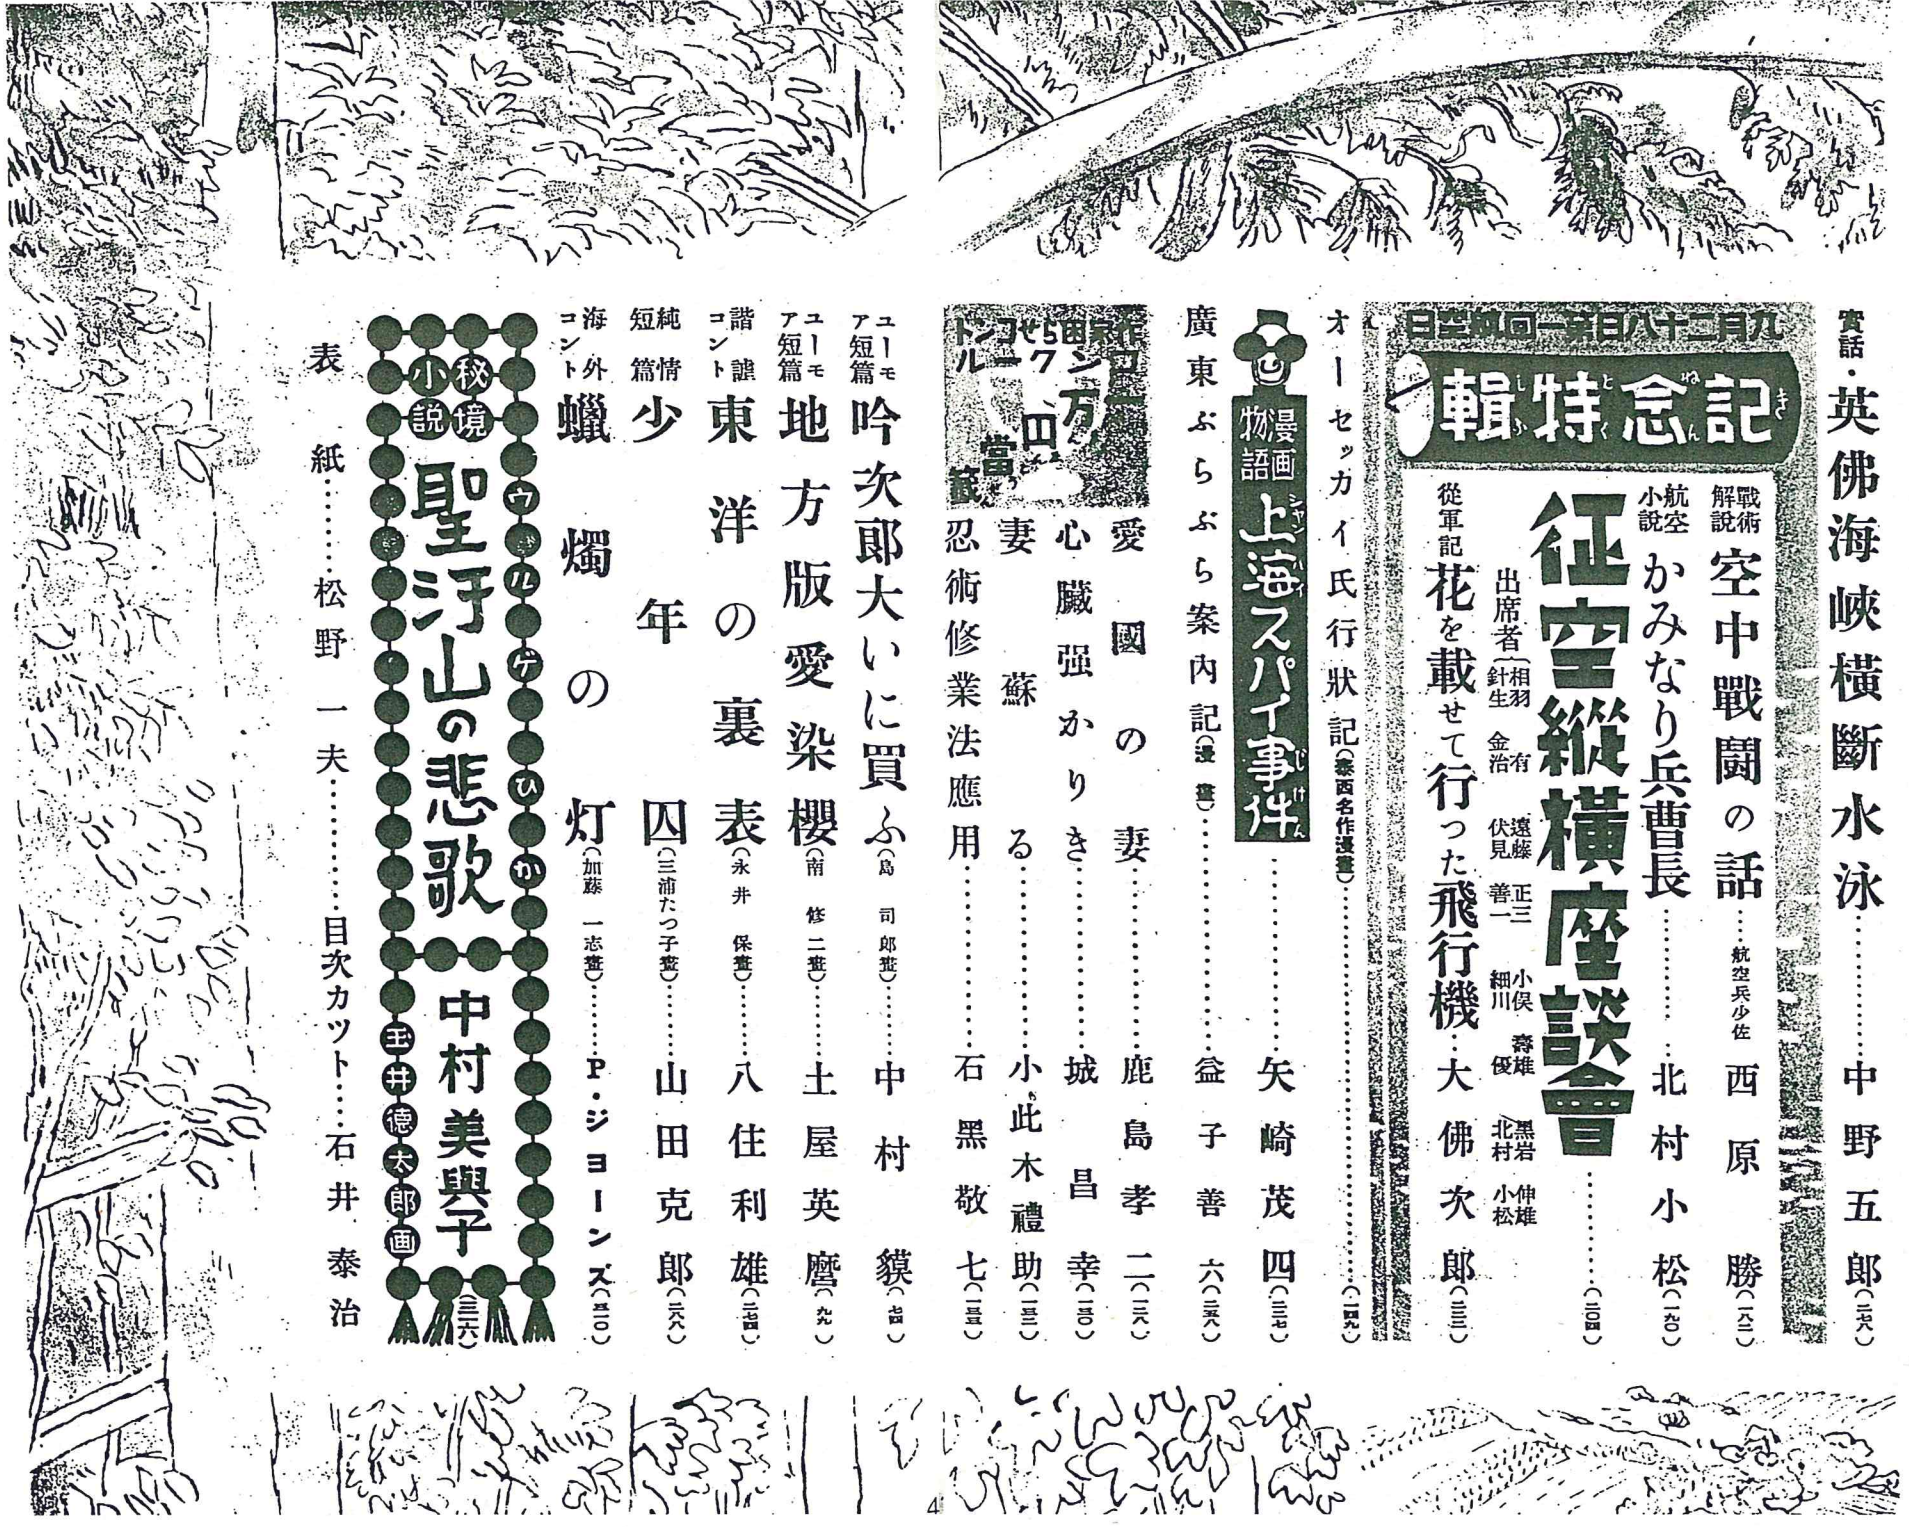 實話・英佛海峽橫斷水泳…………中野五郎(二七八)
九月二十八日第一回航空日
記念特輯
きねんとくしふ
戰術解説 空中戰鬪の話……航空兵少佐 西原勝(一八二)
航空小説 かみなり兵曹長…………北村小松(一九〇)
征空縱橫座談會…………(二〇四)
出席者(相羽有 遠藤正三 小俣壽雄 黑岩伸雄
針生金治 伏見善一 細川優 北村小松
從軍記 花を載せて行った飛行機…大佛次郎(二三二)
オーセッカイ氏行狀記(泰西名作漫畫)…………(一四九)
漫画物語 上海スパイ事件…………矢崎茂四(二三七)
シャンハイ じけん
廣東ぶらぶら案內記(漫畫)…………益子善六(二五八)
愛國の妻…………鹿島孝二(一二八)
心臟强かりき…………城昌幸(一三〇)
妻蘇る…………小此木禮助(一三二)
忍術修業法應用…………石黑敬七(一三三)
ユーモア短篇 吟次郎大いに買ふ(島司郎畫)………中村獏(七四)
ユーモア短篇 地方版愛染櫻(南修二畫)………土屋英麿(九九)
諧謔コント 東洋の裏表(永井保畫)………八住利雄(二七四)
純情短篇 少年囚(三浦たつ子畫)………山田克郎(二八八)
海外コント 蠟燭の灯(加藤一志畫)………P・ジョーンズ(三一〇)
秘境小説 聖汚山の悲歌 中村美與子(三一六)
ウ゛ルゲひか
玉井徳太郎画
表紙…………松野一夫…………目次カット……石井泰治
4